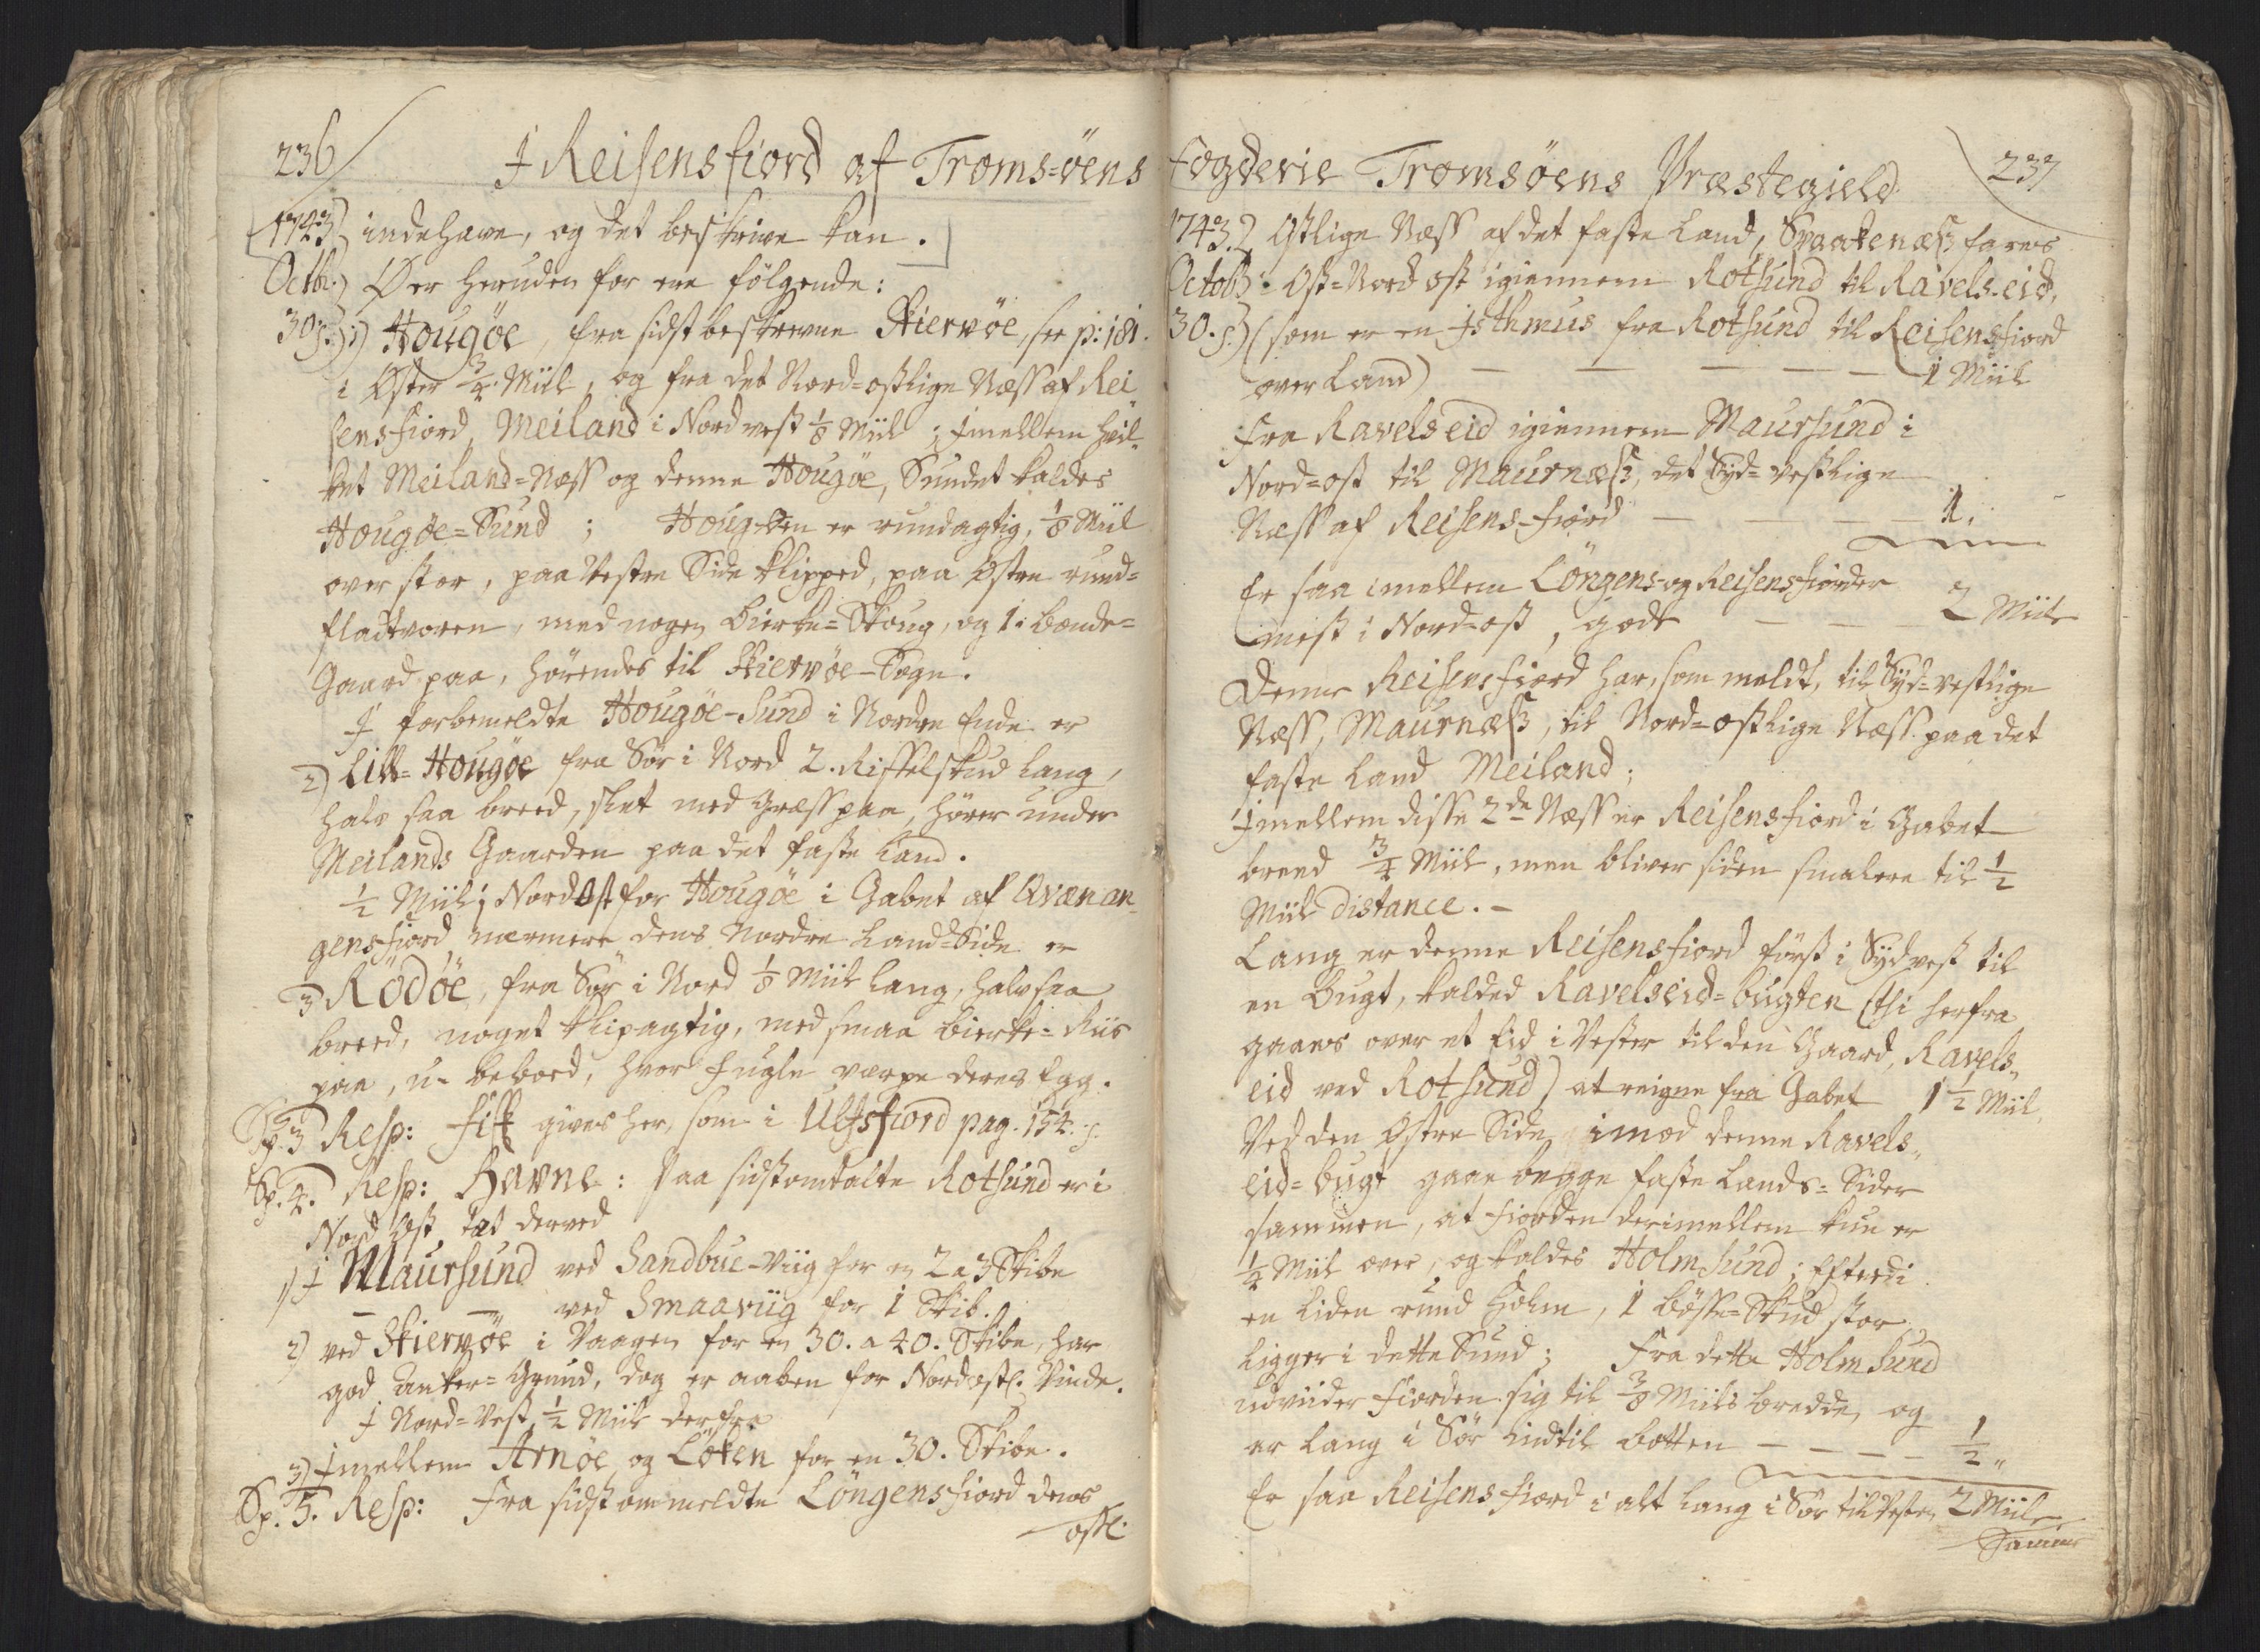 236
I Reisensfiord af Troms=öens
1743 indehave, og det beskrive kan.
Octbr. Øer heruden for ere fölgende:
30. s. 1) Hougöe, fra sidst beskrevne Skiervöe, see p: 181.
i Øster 3/4 Miil, og fra det Nord=ostlige Næss af Rei
sensfiord, Meiland i Nordvest 1/8 Miil; Jmellem hvil-
ket Meiland=Næss og denne Hougöe, Sundet kaldes
Hougöe=Sund; Houg-öen er rundagtig, 1/8 Miil
over stor, paa Vestre Side klipped, paa Østre rund=
fladtvoren, med nogen Birke=Skoug, og 1: Bonde=
Gaard paa, hörendes til Skiervöe-Sogn.
I forbemeldte Hougöe-Sund i Nordre Ende er
2) Lill-Hougöe fra Sör i Nord 2. Riffelskud lang,
halv saa breed, slet med Græss paa, hörer under
Meilands Gaarden paa det faste Land.
1/2 Miil i NordOst for Hougöe i Gabet af Qvænan-
gensfiord nærmere dens Nordre Land=Side er
3 Rödöe, fra Sör i Nord 1/8 Miil lang, halv saa
breed, noget klipagtig, med smaa Birke=Riis
paa, u-beboed, hvor Fugle værpe deres Egg.
Sp. 3 Resp: Fisk gives her, som i Ulfsfiord pag. 154. s.
Sp. 4. Resp: Havne: paa sidstomtalte Rotsund er i
Nord Ost, tæt derved
1) I Maursund ved Sandbue-Viig for en 2 a 3 Skibe
— — ved Smaaviig for 1 Skib.
2) ved Skiervöe i Vaagen for en 30. a 40. Skibe, har
god Anker=Grund, dog er aaben for Nordostl. Vinde.
I Nord=Vest 1/2 Miil derfra
3) Jmellem Arnöe og Löken for en 30. Skibe.
Sp. 5. Resp: Fra sidstommeldte Löngensfiord dens
ostl.
Fogderie Tromsöens Præstegield
237
1743. Ostlige Næss af det faste Land, Spaakenæss fares
Octob: Ost=Nord ost igiennem Rotsund til Ravels-eid,
30. s. (som er en Isthmus fra Rotsund til Reisensfiord
over Land) — — — — 1 Miil
Fra Ravelseid igiennem Maursund i
Nord=ost til Maurnæss, det Syd=vestlige
Næss af Reisens-fiord — — — 1.
Er saa imellem Löngens-og Reisensfiorder
mest i Nord=ost, gode — — 2 Miile
Denne Reisensfiord har, som meldt, til Syd=vestlige
Næss, Maurnæss, til Nord=ostlige Næss paa det
faste Land Meiland;
Jmellem disse 2de Næss er Reisensfiord i Gabet
breed 3/4 Miil, men bliver siden smalere til 1/2
Miils distance. -
Lang er denne Reisensfiord först i Sydvest til
en Bugt, kalded Ravelseid=bugten (thi herfra
gaaes over et Eid i Vester til den Gaard, Ravels-
eid ved Rotsund) at reigne fra Gabet 1 1/2 Miil
Ved den Østre Side imod denne Ravels-
eid=bugt gaar begge faste Lands=Sider
sammen, at Fiorden derimellem kun er
1/4 Miil over, og kaldes Holmsund; Efterdi
en liden rund Holm, 1 Bösse=Skud stor
ligger i dette Sund; Fra dette Holmsund
udviider Fiorden sig til 3/8 Miils bredde, og
er lang i Sör indtil botten — — — 1/2 "
Er saa Reisensfiord i alt lang i Sör til Vesten 2 Miile